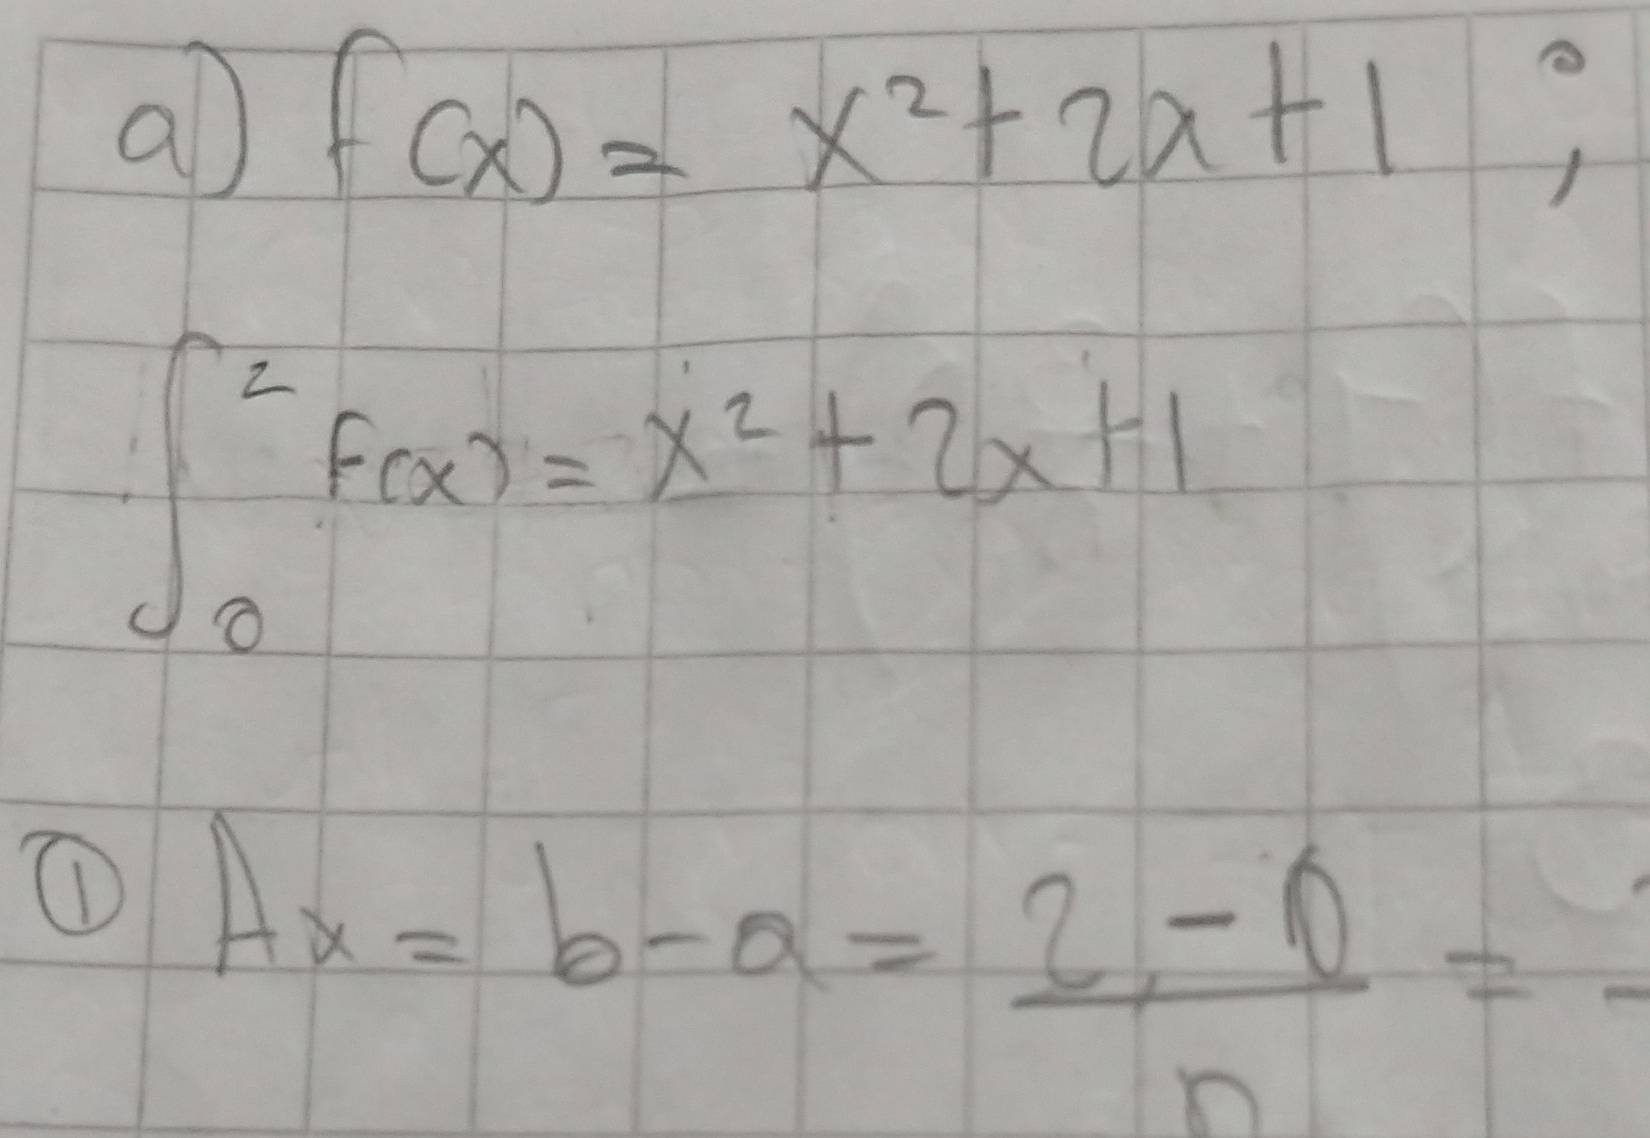 a) f(x) = x² + 2x + 1 ;
∫₀² f(x) = x² + 2x + 1
① Ax = b - a = (2 - 0)/n =